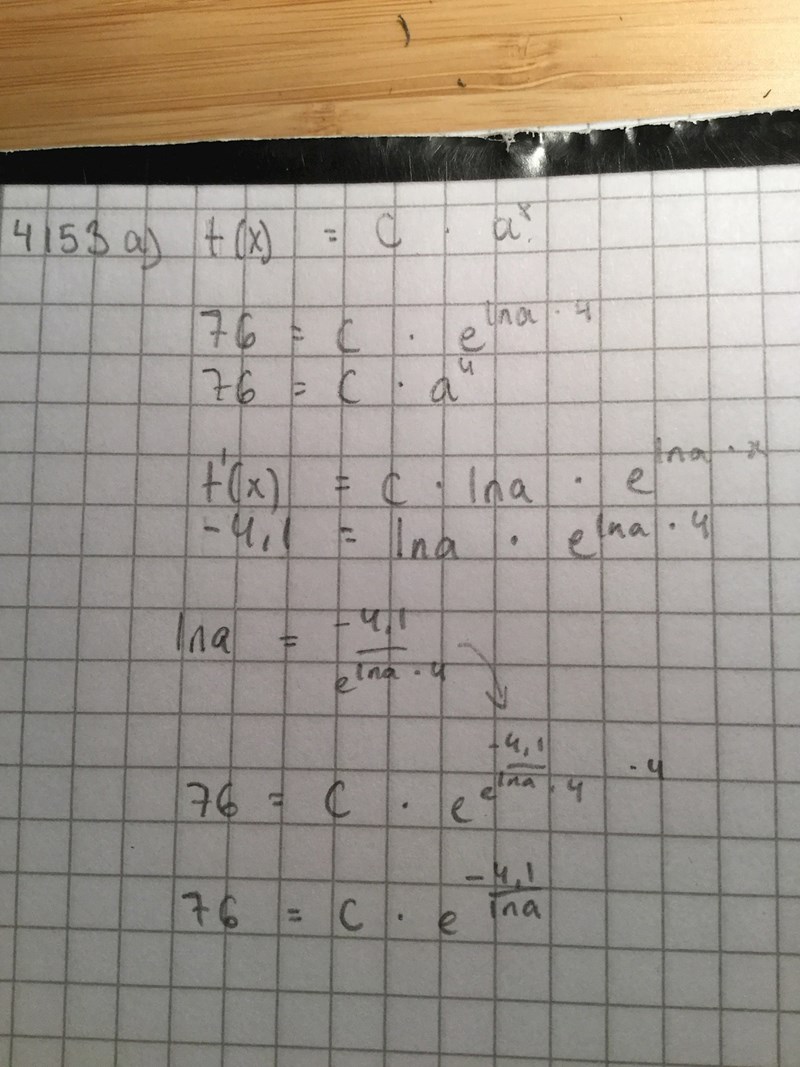 4153 a) f(x) = C · a^x.
76 = C · e^(lna · 4)
76 = C · a^4
f'(x) = C · lna · e^(lna · x)
-4,1 = lna · e^(lna · 4)
lna = -4,1 / e^(lna · 4)
76 = C · e^(-4,1 / e^(lna · 4) · 4)
76 = C · e^(-4,1 / lna)